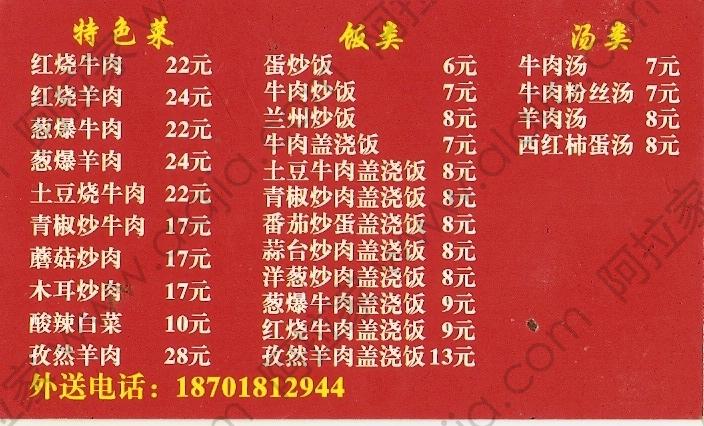 特色菜
红烧牛肉 22元
红烧羊肉 24元
葱爆牛肉 22元
葱爆羊肉 24元
土豆烧牛肉 22元
青椒炒牛肉 17元
蘑菇炒肉 17元
木耳炒肉 17元
酸辣白菜 10元
孜然羊肉 28元
饭类
蛋炒饭 6元
牛肉炒饭 7元
兰州炒饭 8元
牛肉盖浇饭 7元
土豆牛肉盖浇饭 8元
青椒炒肉盖浇饭 8元
番茄炒蛋盖浇饭 8元
蒜台炒肉盖浇饭 8元
洋葱炒肉盖浇饭 8元
葱爆牛肉盖浇饭 9元
红烧牛肉盖浇饭 9元
孜然羊肉盖浇饭 13元
汤类
牛肉汤 7元
牛肉粉丝汤 7元
羊肉汤 8元
西红柿蛋汤 8元
外送电话：18701812944
阿拉家 www.alajia.com